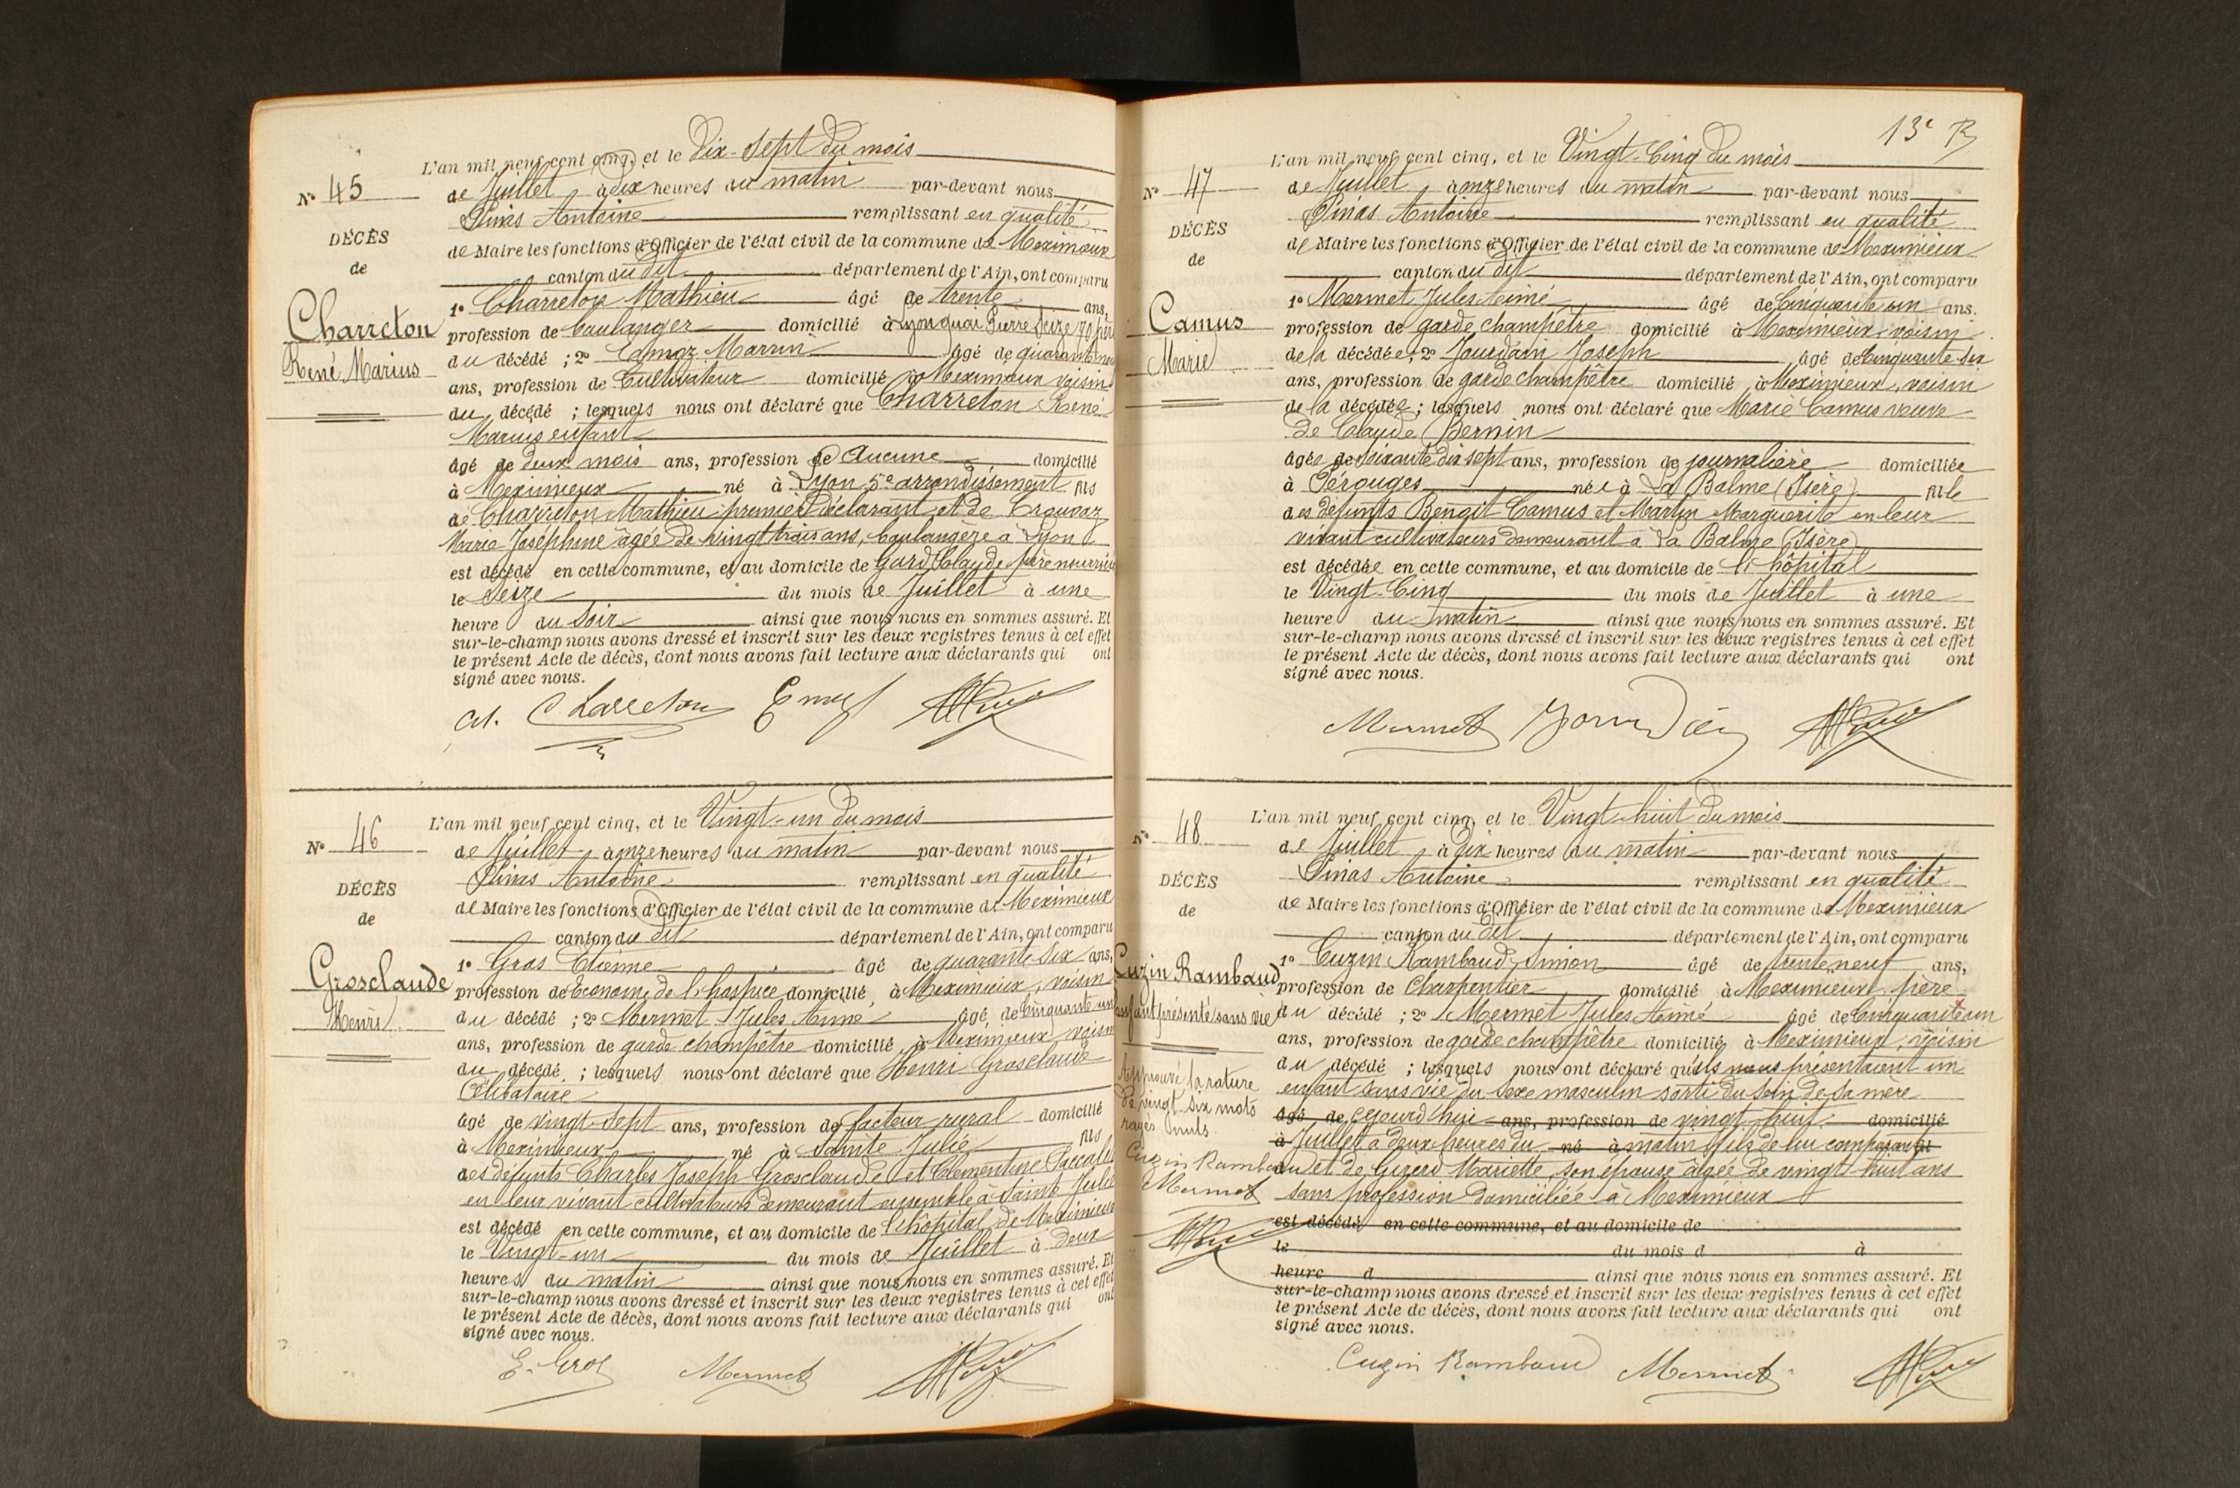 L'an mil neuf cent cinq, et le Dix-sept du mois
N° 45
de Juillet, à dix heures du matin par-devant nous
Pinas Antoine remplissant en qualité
DÉCÈS
de Maire les fonctions d'Officier de l'état civil de la commune de Meximieux
de
canton du dit département de l'Ain, ont comparu
Charreton
1° Charreton Mathieu âgé de trente ans,
profession de boulanger domicilié à Lyon quai Pierre Scize 70 père
René Marius
du décédé ; 2° Marrin âgé de
ans, profession de Cultivateur domicilié à Meximieux voisin
du décédé ; lesquels nous ont déclaré que Charreton René
Marius enfant
âgé de deux mois ans, profession de aucune domicilié
à Meximieux né à Lyon 5e arrondissement fils
de Charreton Mathieu premier déclarant et de
Marie Joséphine âgée de vingt trois ans, boulangère à Lyon
est décédé en cette commune, et au domicile de Gard Claude père nourricier
le Seize du mois de Juillet à une
heure du soir ainsi que nous nous en sommes assuré. Et
sur-le-champ nous avons dressé et inscrit sur les deux registres tenus à cet effet
le présent Acte de décès, dont nous avons fait lecture aux déclarants qui ont
signé avec nous.
Charreton
L'an mil neuf cent cinq, et le Vingt-un du mois
N° 46
de Juillet, à onze heures du matin par-devant nous
Pinas Antoine remplissant en qualité
DÉCÈS
de Maire les fonctions d'Officier de l'état civil de la commune de Meximieux
de
canton du dit département de l'Ain, ont comparu
Grosclaude
1° Gros Etienne âgé de quarante six ans,
profession de Econome de l'hospice domicilié à Meximieux, voisin
Henri
du décédé ; 2° Mermet Jules Aimé âgé de Cinquante un
ans, profession de garde champêtre domicilié à Meximieux voisin
du décédé ; lesquels nous ont déclaré que Henri Grosclaude
Célibataire
âgé de vingt-sept ans, profession de facteur rural domicilié
à Meximieux né à Sainte Julie fils
des défunts Charles Joseph Grosclaude et Clémentine
en leur vivant cultivateurs demeurant ensemble à Sainte Julie
est décédé en cette commune, et au domicile de l'hôpital de Meximieux
le Vingt-un du mois de Juillet à deux
heures du matin ainsi que nous nous en sommes assuré. Et
sur-le-champ nous avons dressé et inscrit sur les deux registres tenus à cet effet
le présent Acte de décès, dont nous avons fait lecture aux déclarants qui ont
signé avec nous.
E. Gros Mermet
13e
L'an mil neuf cent cinq, et le Vingt-Cinq du mois
N° 47
de Juillet, à onze heures du matin par-devant nous
Pinas Antoine remplissant en qualité
DÉCÈS
de Maire les fonctions d'Officier de l'état civil de la commune de Meximieux
de
canton du dit département de l'Ain, ont comparu
Camus
1° Mermet Jules Aimé âgé de Cinquante un ans.
profession de garde champêtre domicilié à Meximieux, voisin
Marie
de la décédée ; 2° Jourdain Joseph âgé de Cinquante six
ans, profession de garde champêtre domicilié à Meximieux, voisin
de la décédée ; lesquels nous ont déclaré que Marie Camus veuve
de Claude Bernin
âgée de soixante dix sept ans, profession de journalière domiciliée
à Pérouges née à La Balme (Isère) fille
des défunts Benoit Camus et Martin Marguerite en leur
vivant cultivateurs demeurant à La Balme (Isère)
est décédée en cette commune, et au domicile de l'hôpital
le Vingt-Cinq du mois de Juillet à une
heure du matin ainsi que nous nous en sommes assuré. Et
sur-le-champ nous avons dressé et inscrit sur les deux registres tenus à cet effet
le présent Acte de décès, dont nous avons fait lecture aux déclarants qui ont
signé avec nous.
Mermet Jourdain
L'an mil neuf cent cinq, et le Vingt-huit du mois
N° 48
de Juillet, à dix heures du matin par-devant nous
Pinas Antoine remplissant en qualité
DÉCÈS
de Maire les fonctions d'Officier de l'état civil de la commune de Meximieux
de
canton du dit département de l'Ain, ont comparu
Cuzin Rambaud
1° Cuzin Rambaud Simon âgé de trente neuf ans,
profession de Charpentier domicilié à Meximieux père
enfant présenté sans vie
du décédé ; 2° Mermet Jules Aimé âgé de Cinquante un
ans, profession de garde champêtre domicilié à Meximieux, voisin
du décédé ; lesquels nous ont déclaré qu'ils nous présentaient un
Approuvé la rature
enfant sans vie du sexe masculin sorti du sein de sa mère
de vingt-six mots
âgé de cejourd'hui ans, profession de vingt huit domicilié
rayés nuls.
à Juillet à deux heures du né à matin fils de lui comparant
Cuzin Rambaud
et de Girerd Mariette, son épouse âgée de vingt huit ans
Mermet
sans profession domiciliée à Meximieux
est décédé en cette commune, et au domicile de
le du mois d à
heure d ainsi que nous nous en sommes assuré. Et
sur-le-champ nous avons dressé et inscrit sur les deux registres tenus à cet effet
le présent Acte de décès, dont nous avons fait lecture aux déclarants qui ont
signé avec nous.
Cuzin Rambaud Mermet